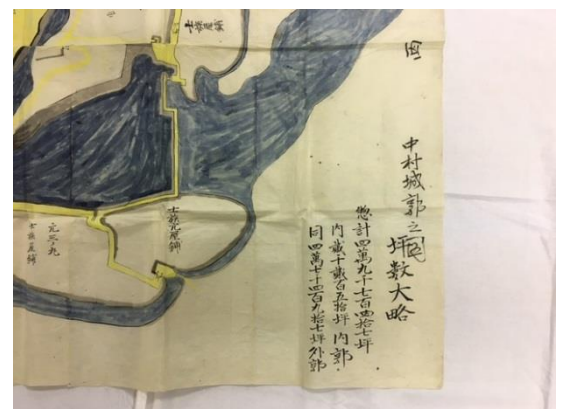 中村城郭之図
坪數大略
惣計四萬九千七百四拾七坪
内貳千貳百五拾坪 内郭
同四萬七千四百九拾七坪外郭
士族屋鋪
士族元屋鋪
元三ノ丸
士族屋鋪